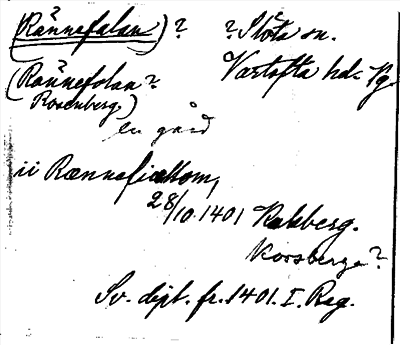 (Rånnefalan)? ?Slöta sn.
Vartofta hd. Vg.
(Rånnefolan?
Rosenberg.)
en gård
ii Rænnefiællom,
28/10.1401 Kakberg.
Korsberga?
Sv. dipl. fr. 1401. I. Reg.